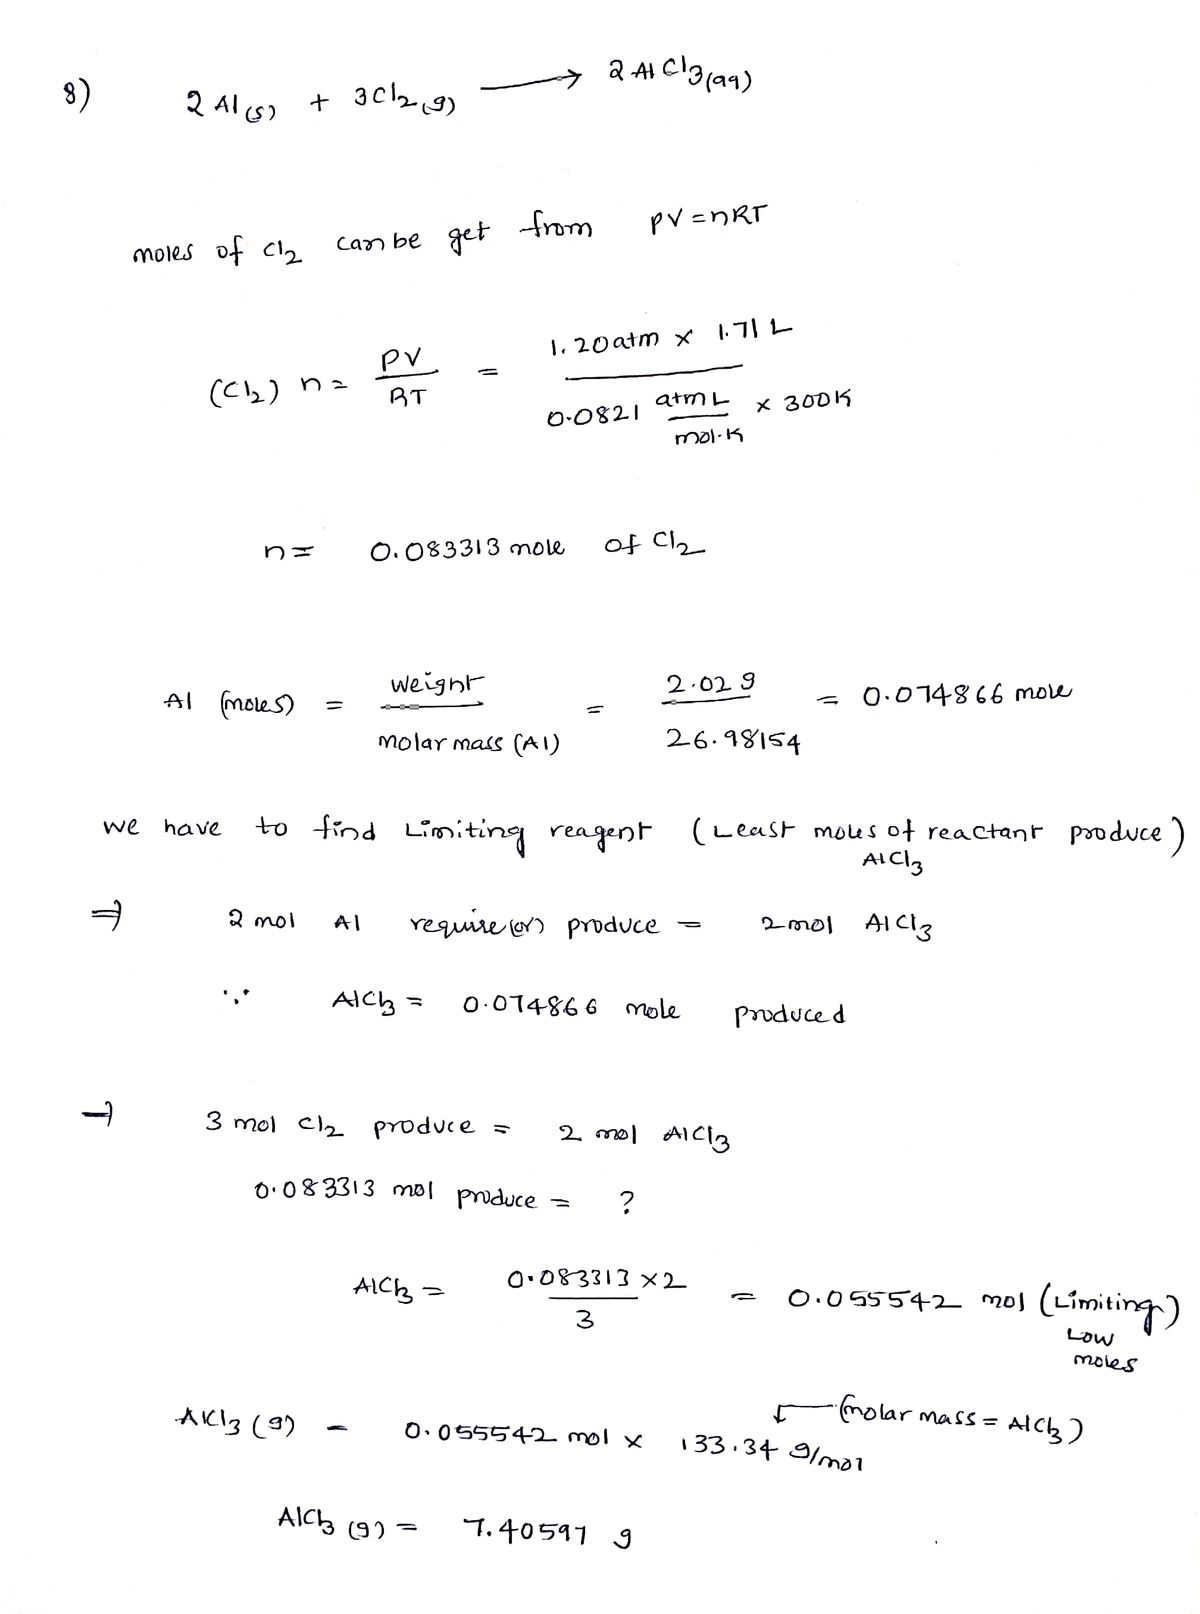 8) 2 Al(s) + 3Cl2(g) ⟶ 2 AlCl3(aq)
moles of Cl2 can be get from PV = nRT
(Cl2) n = PV/RT = 1.20 atm × 1.71 L / 0.0821 atm L/mol.K × 300K
n = 0.083313 mole of Cl2
Al (moles) = weight/molar mass (Al) = 2.02 g/26.98154 = 0.074866 mole
we have to find Limiting reagent (Least moles of reactant produce)
AlCl3
⇒ 2 mol Al require (or) produce = 2 mol AlCl3
∵ AlCl3 = 0.074866 mole produced
→ 3 mol Cl2 produce = 2 mol AlCl3
0.083313 mol produce = ?
AlCl3 = 0.083313 × 2/3 = 0.055542 mol (Limiting)
Low
moles
AlCl3 (g) = 0.055542 mol × 133.34 g/mol ← (molar mass = AlCl3)
AlCl3 (g) = 7.40597 g